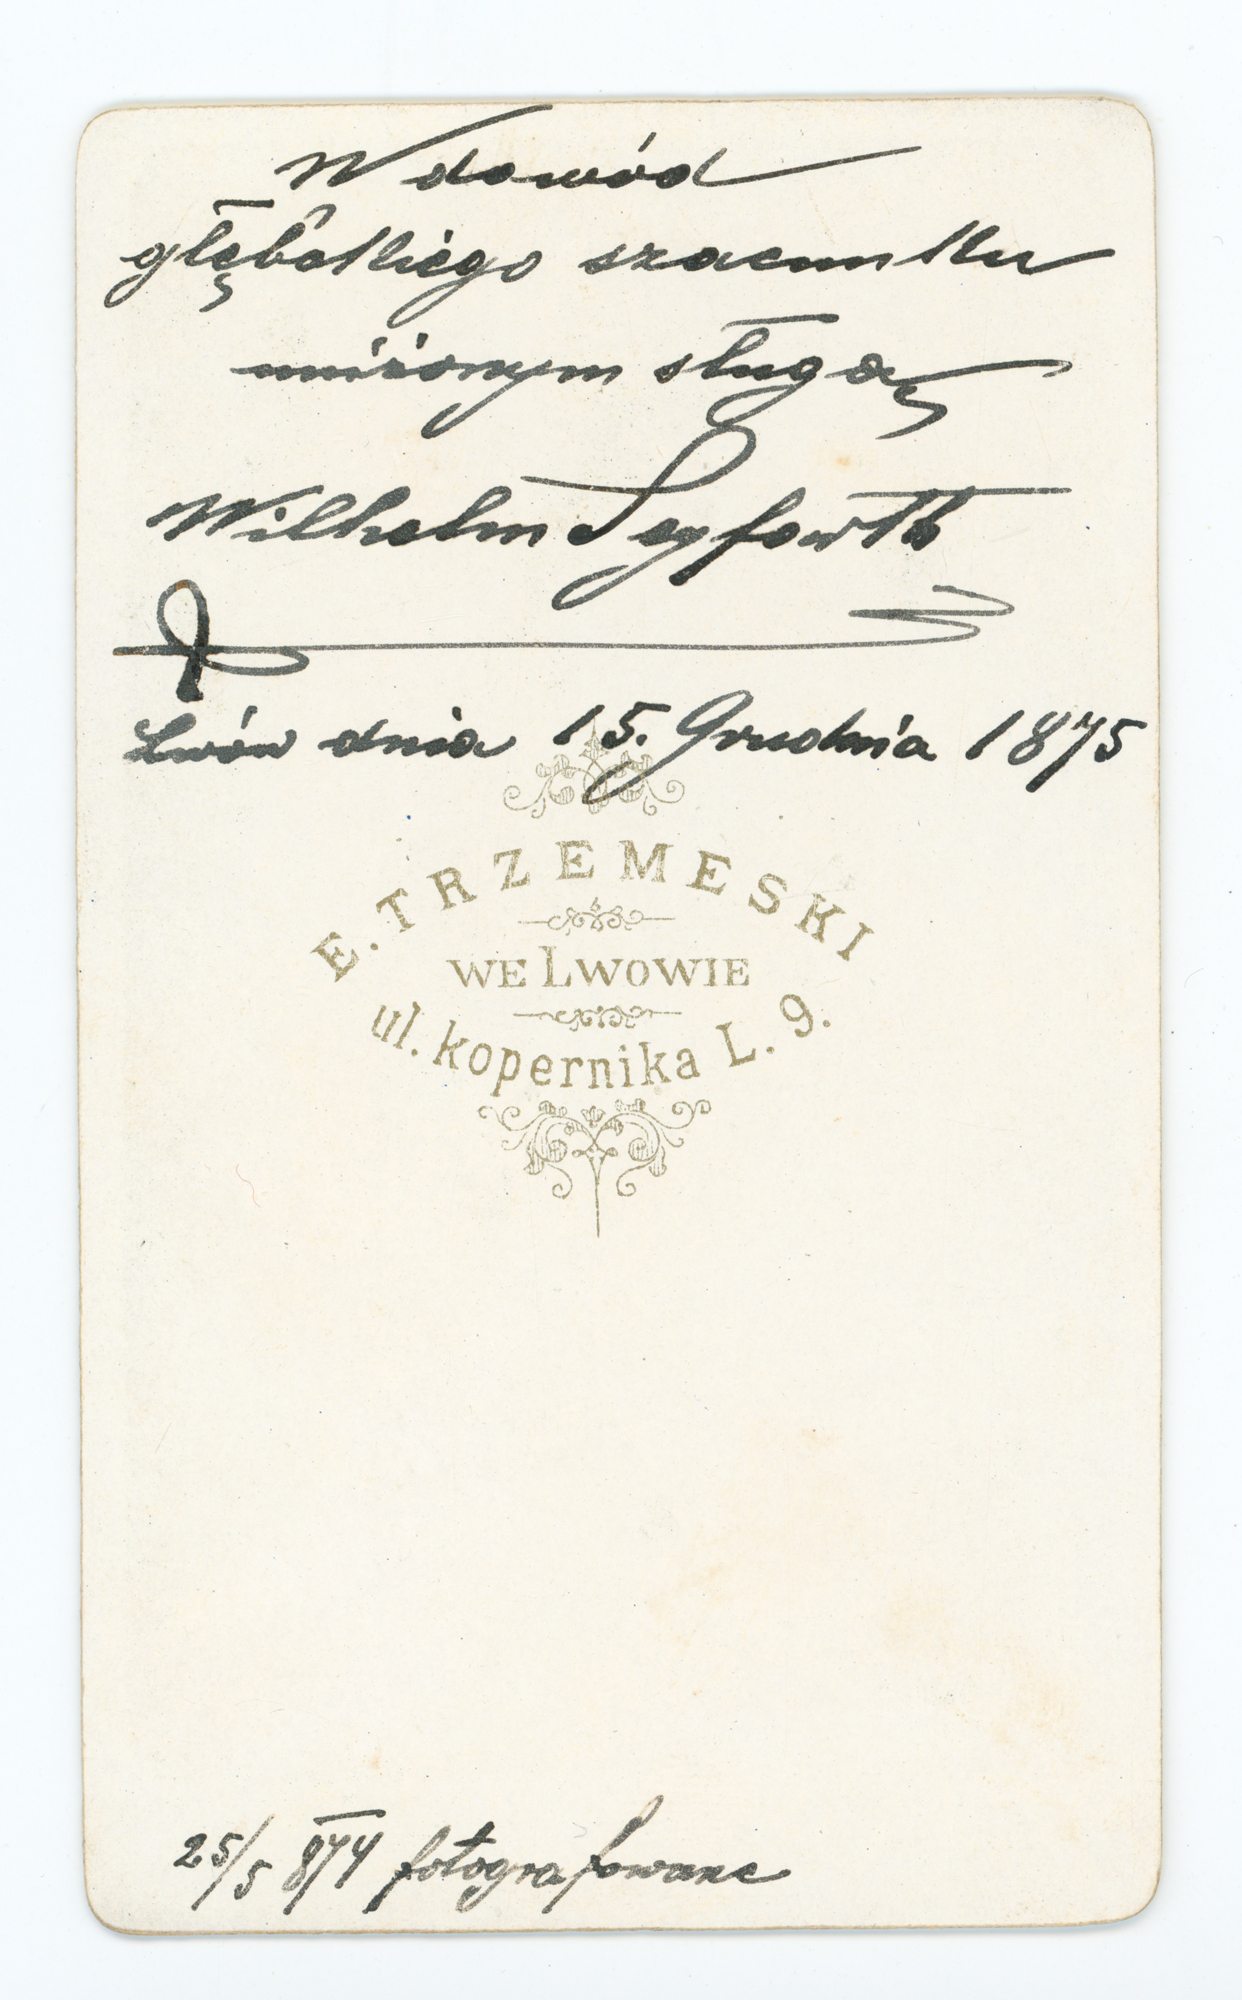 W dowód
głębokiego szacunku
uniżonym sługą
Wilhelm Seyfarth
Lwów dnia 15. Grudnia 1875
E. TRZEMESKI
WE LWOWIE
ul. kopernika L. 9.
25/5 874 fotografowane